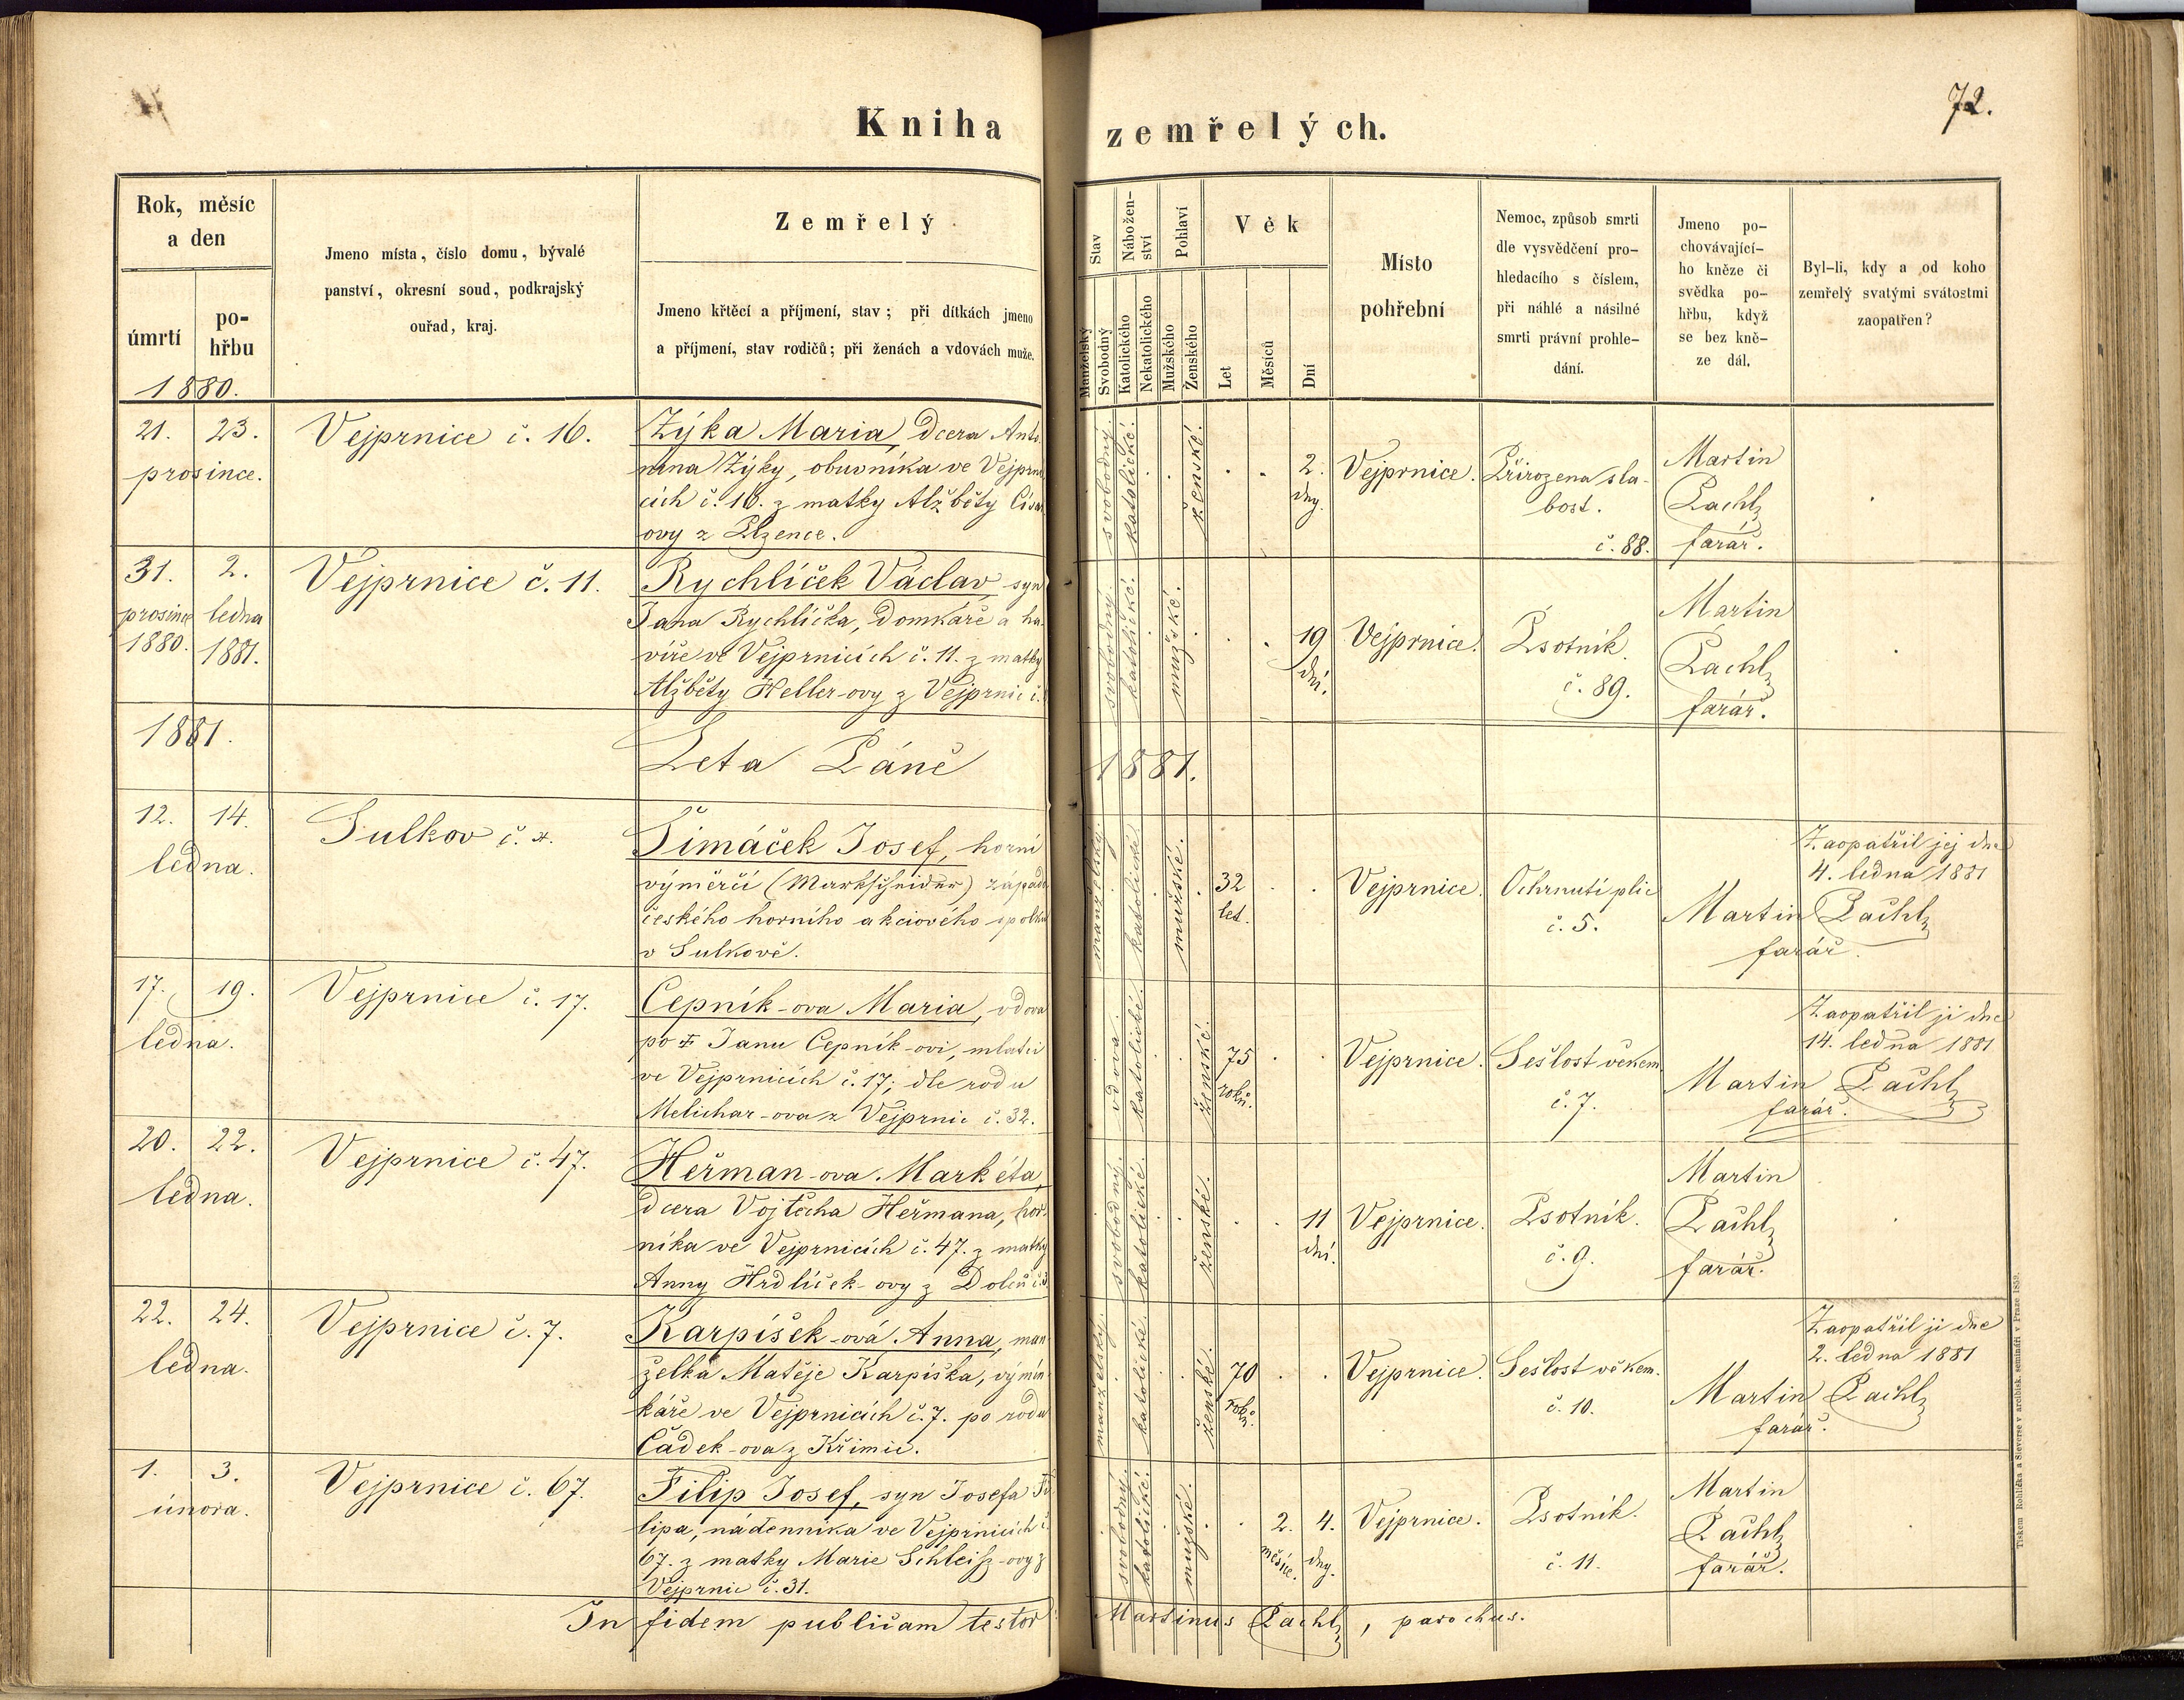 72.
Kniha zemřelých.
Rok, měsíc
a den
úmrtí
po-
hřbu
1880.
Jmeno místa, číslo domu, bývalé
panství, okresní soud, podkrajský
ouřad, kraj.
Zemřelý
Jmeno křtěcí a příjmení, stav; při dítkách jmeno
a příjmení, stav rodičů; při ženách a vdovách muže.
Stav
Manželský
Svobodný
Nábožen-
ství
Katolického
Nekatolického
Pohlaví
Mužského
Ženského
Věk
Let
Měsíců
Dní
Místo
pohřební
Nemoc, způsob smrti
dle vysvědčení pro-
hledacího s číslem,
při náhlé a násilné
smrti právní prohle-
dání.
Jmeno po-
chovávající-
ho kněze či
svědka po-
hřbu, když
se bez kně-
ze dál.
Byl-li, kdy a od koho
zemřelý svatými svátostmi
zaopatřen?
21. 23.
prosince.
Vejprnice č. 16.
Zýka Maria, dcera Anto-
nína Zýky, obuvníka ve Vejprni
cích č. 16. z matky Alžběty Císař
ovy z Plzence.
svobodný.
katolické.
ženské.
2.
dny.
Vejprnice.
Přirozena sla-
bost.
č. 88.
Martin
Pachl,
farář.
31. 2.
prosince ledna
1880. 1881.
Vejprnice č. 11.
Rychlíček Václav, syn
Jana Rychlíčka, domkáře a ha-
víře ve Vejprnicích č. 11. z matky
Alžběty Heller-ovy z Vejprnic č.
svobodný.
katolické.
mužské.
19
dní.
Vejprnice.
Psotník.
č. 89.
Martin
Pachl,
farář.
1881.
Leta Páně 1881.
12. 14.
ledna.
Sulkov č.
Šimáček Josef, horní
výměrčí (Markscheider) západo
českého horního akciového spolku
v Sulkově.
manželský.
katolické.
mužské.
32
let.
Vejprnice.
Ochrnutí plic
č. 5.
Zaopatřil jej dne
4. ledna 1881
Martin Pachl,
farář.
17. 19.
ledna.
Vejprnice č. 17.
Cepník-ova Maria, vdova
po † Janu Cepník-ovi, mlatci
ve Vejprnicích č. 17; dle rodu
Melichar-ova z Vejprnic č. 32.
vdova.
katolické.
ženské.
75
roků.
Vejprnice.
Sešlost věkem
č. 7.
Zaopatřil ji dne
14. ledna 1881
Martin Pachl,
farář.
20. 22.
ledna.
Vejprnice č. 47.
Heřman-ova Markéta,
dcera Vojtěcha Heřmana, hor-
níka ve Vejprnicích č. 47. z matky
Anny Hrdlíček-ovy z
svobodný.
katolické.
ženské.
11
dní.
Vejprnice.
Psotník.
č. 9.
Martin
Pachl,
farář.
22. 24.
ledna.
Vejprnice č. 7.
Karpíšek-ová Anna, man-
želka Matěje Karpíška, výmin-
káře ve Vejprnicích č. 7. po rodu
Čádek-ova z Křimic.
manželský.
katolické.
ženské.
70
roků.
Vejprnice.
Sešlost věkem.
č. 10.
Zaopatřil ji dne
2. ledna 1881
Martin Pachl,
farář.
1. 3.
února.
Vejprnice č. 67.
Filip Josef, syn Josefa Fi
lipa, nádenníka ve Vejprnicích č.
67. z matky Marie Schleisz-ovy z
Vejprnic č. 31.
svobodný.
katolické.
mužské.
2. 4.
měsíce. dny.
Vejprnice.
Psotník.
č. 11.
Martin
Pachl,
farář.
In fidem publicam testor Martinus Pachl, parochus.
Tiskem Rohlíčka a Sieverse v arcibisk. semináři v Praze 1859.